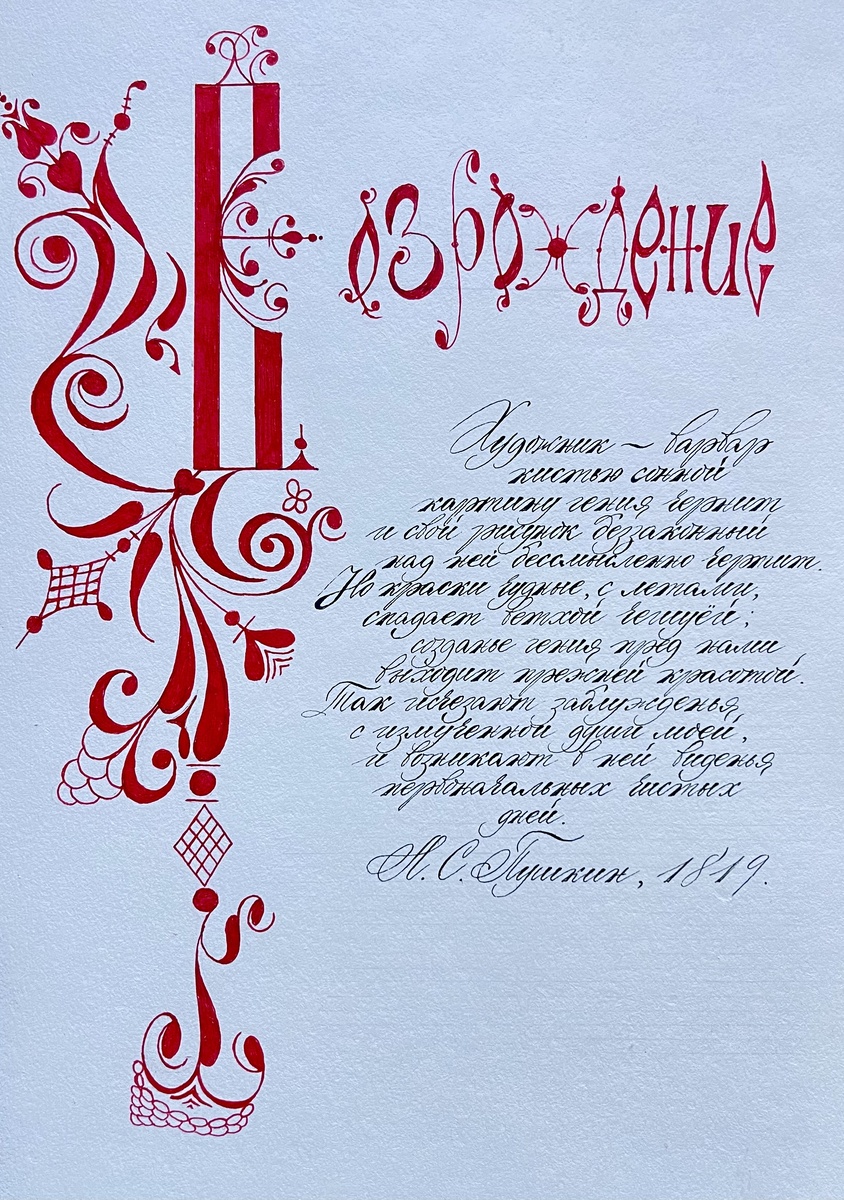 Возрождение
Художник – варвар
кистью сонной
картину гения чернит
и свой рисунок беззаконный
над ней бессмысленно чертит.
Но краски чудные, с летами,
спадает ветхой чешуёй;
созданье гения пред нами
выходит прежней красотой.
Так исчезают заблужденья
с измученной души моей,
и возникают в ней виденья
первоначальных чистых
дней.
А. С. Пушкин, 1819.